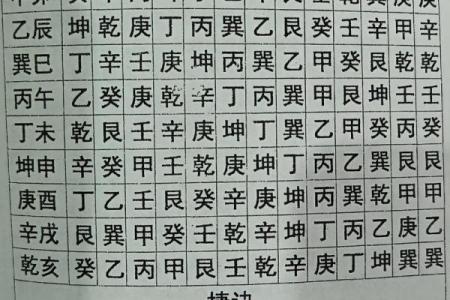 乙辰 坤 乾 庚 丁 丙 巽 乙 艮 癸 壬 辛 甲 辛
巽巳 丁 辛 壬 庚 坤 丙 巽 乙 甲 癸 艮 乾 乾
丙午 乙 癸 庚 乾 辛 丁 丙 巽 甲 艮 坤 壬 壬
丁未 乾 艮 壬 辛 庚 坤 丁 巽 乙 甲 癸 丙 癸
坤申 辛 癸 甲 壬 乾 庚 坤 丁 丙 乙 巽 艮 艮
庚酉 丁 乙 壬 艮 癸 辛 庚 坤 丙 巽 乾 甲 甲
辛戌 艮 巽 甲 癸 壬 乾 辛 坤 丁 丙 乙 庚 乙
乾亥 癸 乙 丙 甲 艮 壬 乾 辛 庚 丁 坤 巽 巽